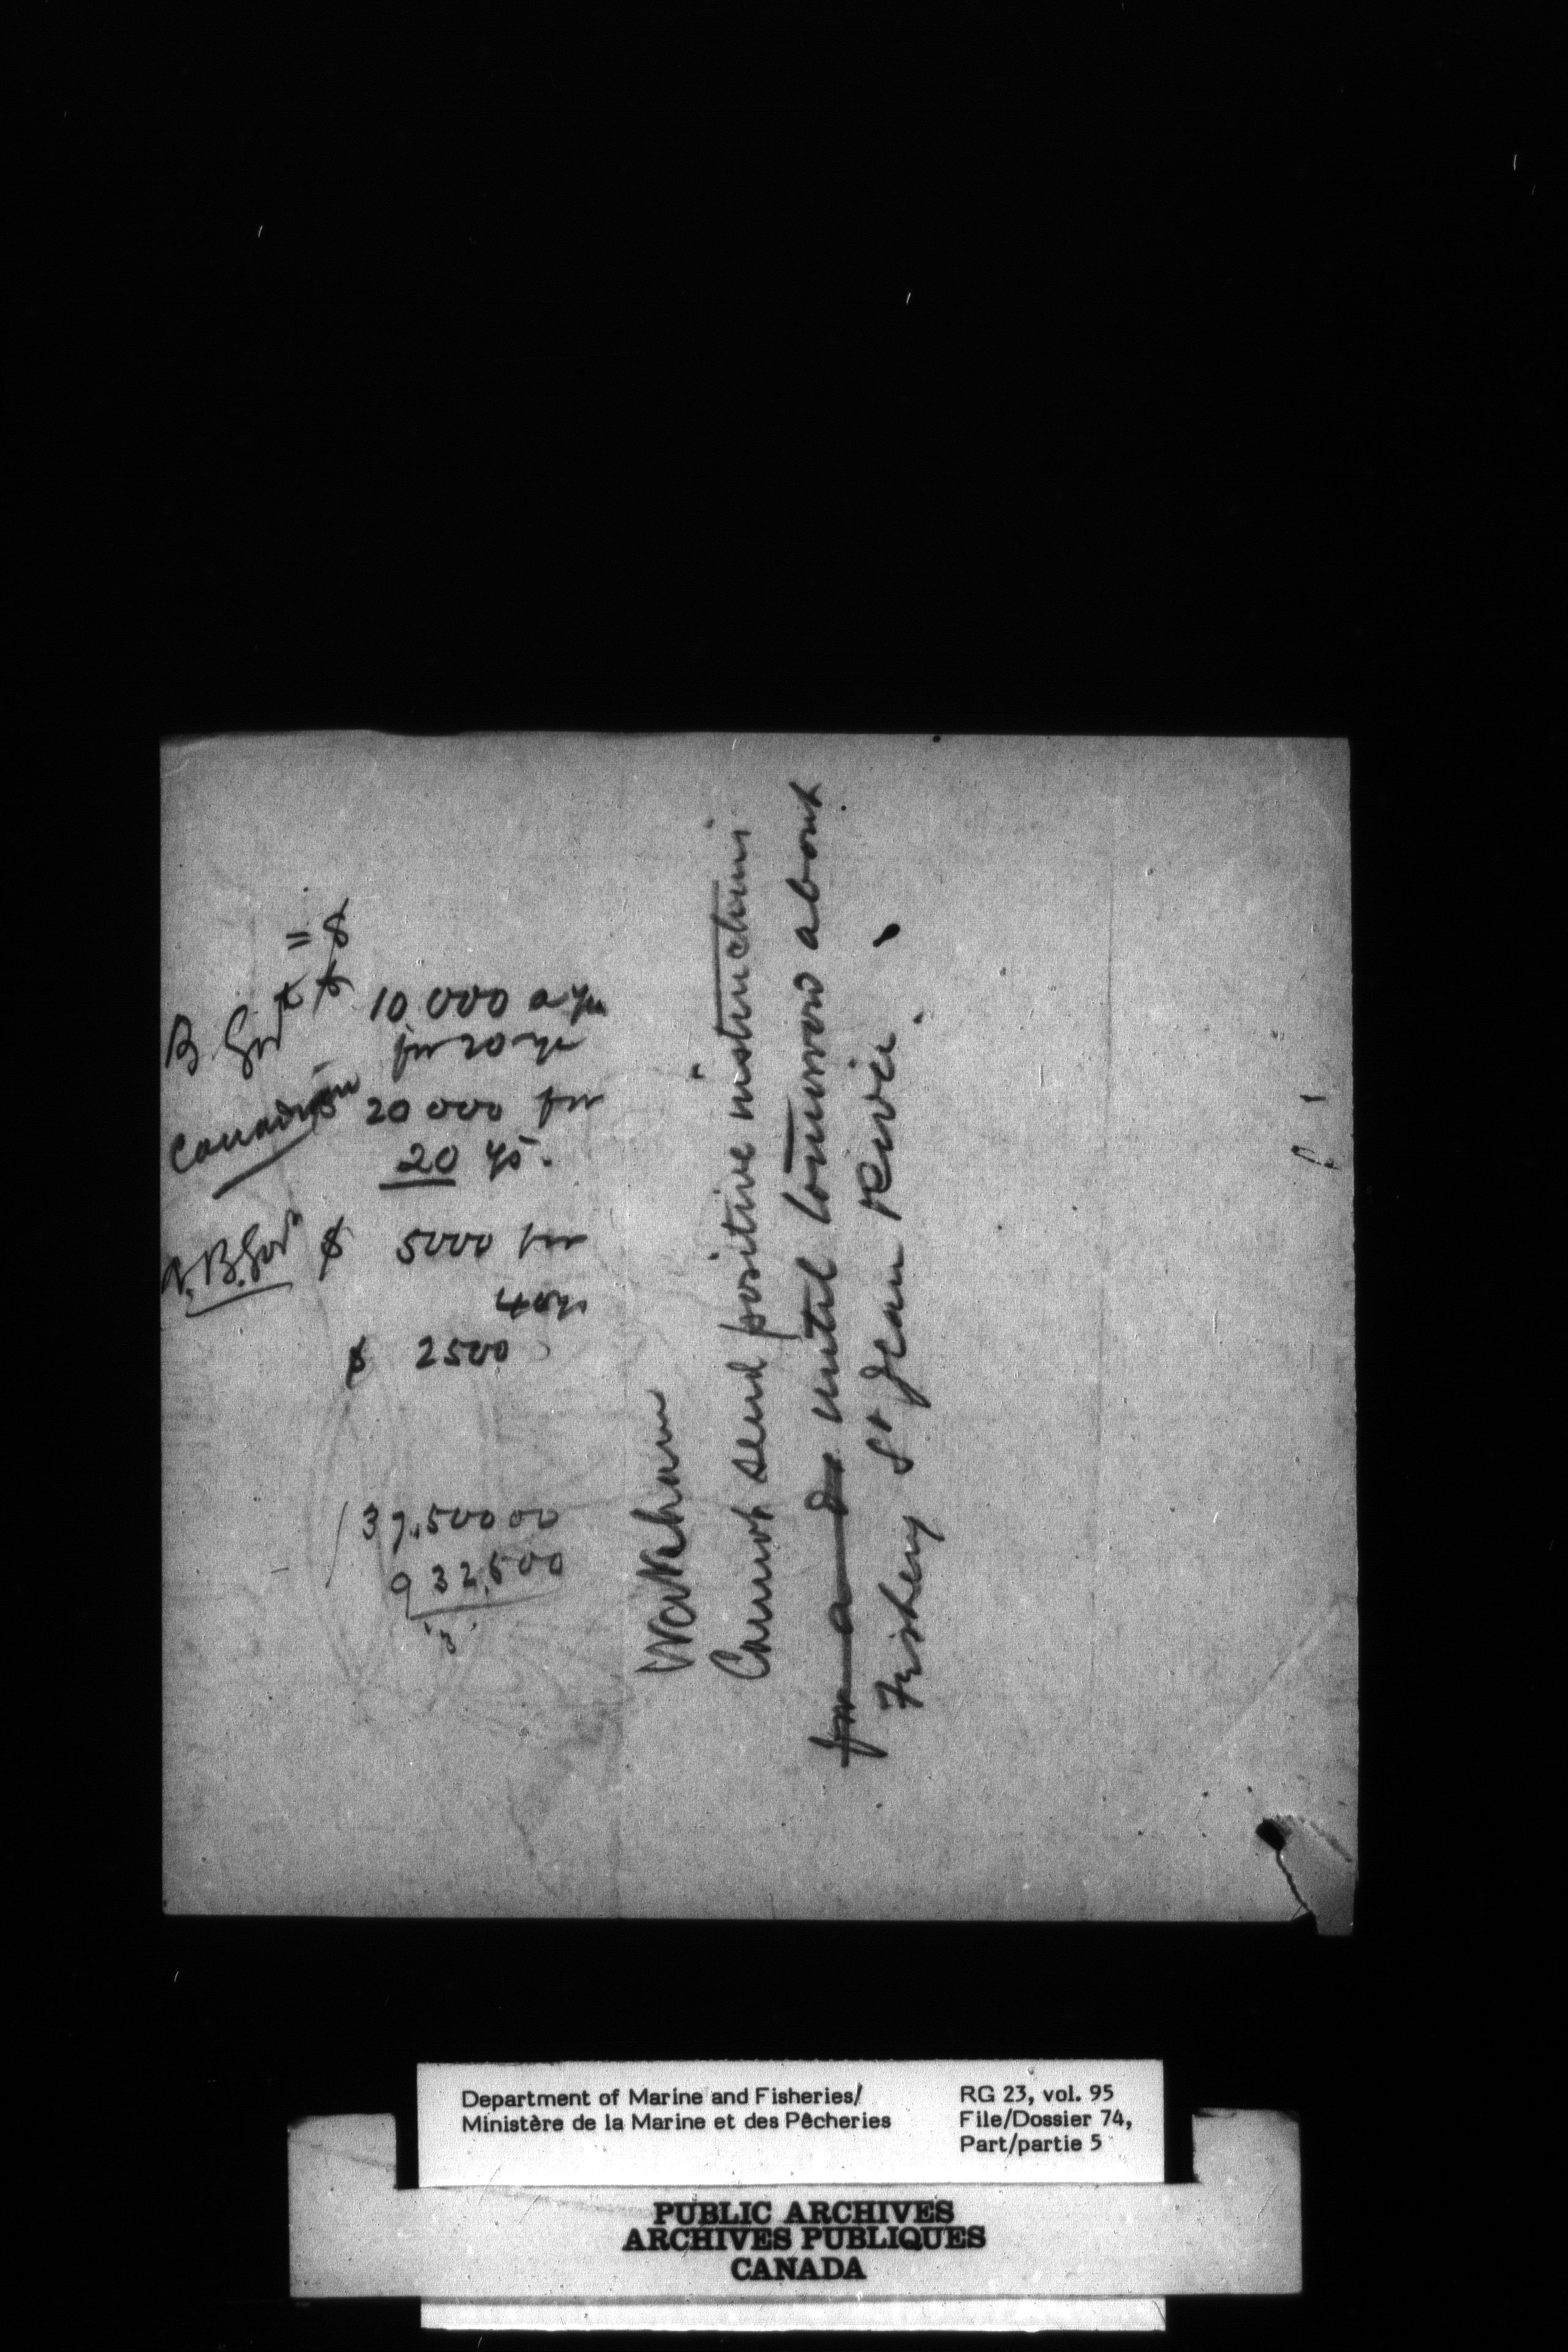 = $
B. Govt $ 10 000 a yr
for 20 yr
Canadian $ 20 000 for
20 ys.
N. B. Govt $ 5000 for
40 ys
$ 2500
37,500 00
932,500
Wakeham
Cannot send positive instructions
for a d. until tomorrow about
Fishery St Jean River.
Department of Marine and Fisheries/
Ministère de la Marine et des Pêcheries
RG 23, vol. 95
File/Dossier 74,
Part/partie 5
PUBLIC ARCHIVES
ARCHIVES PUBLIQUES
CANADA